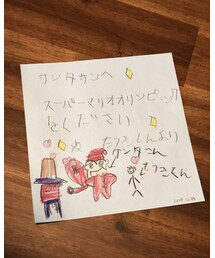 サンタさんへ
スーパーマリオオリンピック
をください
たつきくんより
サンタさん
たつきくん